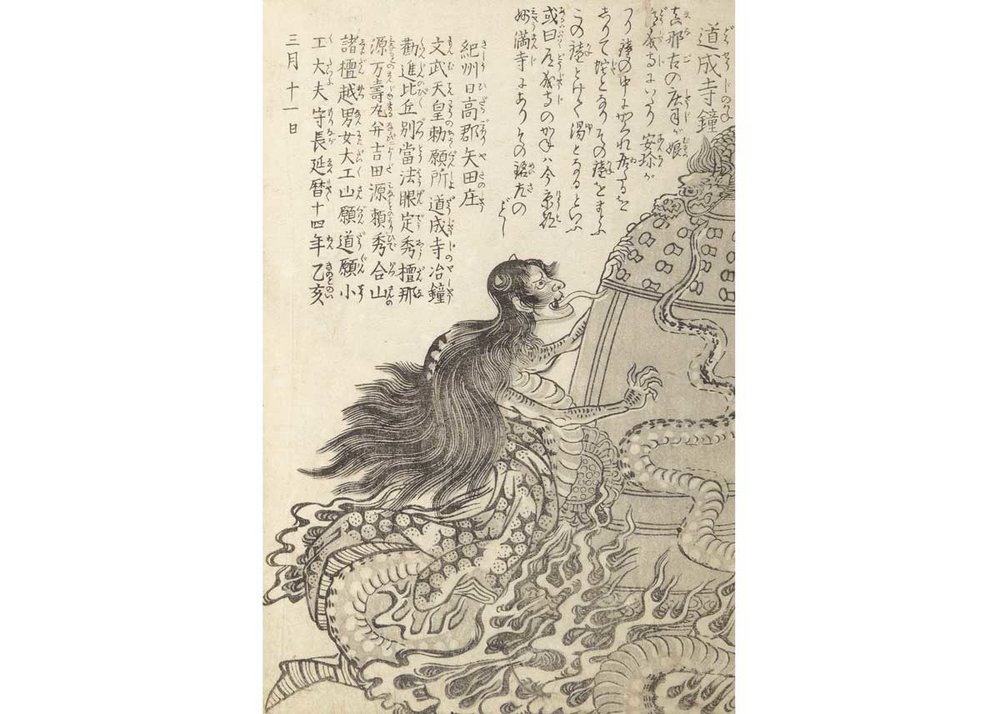 道成寺鐘
真那古の庄司が娘
道成寺にいたり安珍が
つり鐘の中にかくれ居たるを
しりて蛇となりその鐘をまとふ
この鐘とけて湯となるといふ
或曰道成寺のかねハ今京都
妙満寺にありその銘左のごとし
紀州日高郡矢田庄
文武天皇勅願所道成寺冶鐘
勸進比丘別當法眼定秀檀那
源万壽丸并吉田源頼秀合山
諸檀越男女大工山願道願小
工大夫守長延暦十四年乙亥
三月十一日